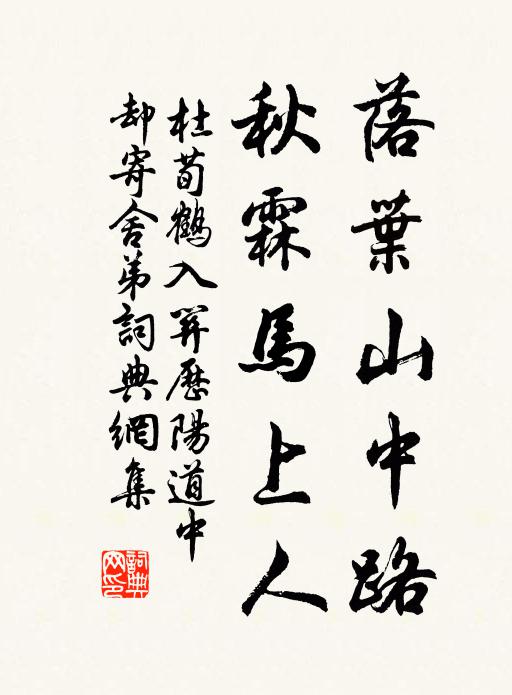 落葉山中路
秋霖馬上人
杜荀鶴入關歷陽道中
却寄舍弟詞典網集
詞典網印